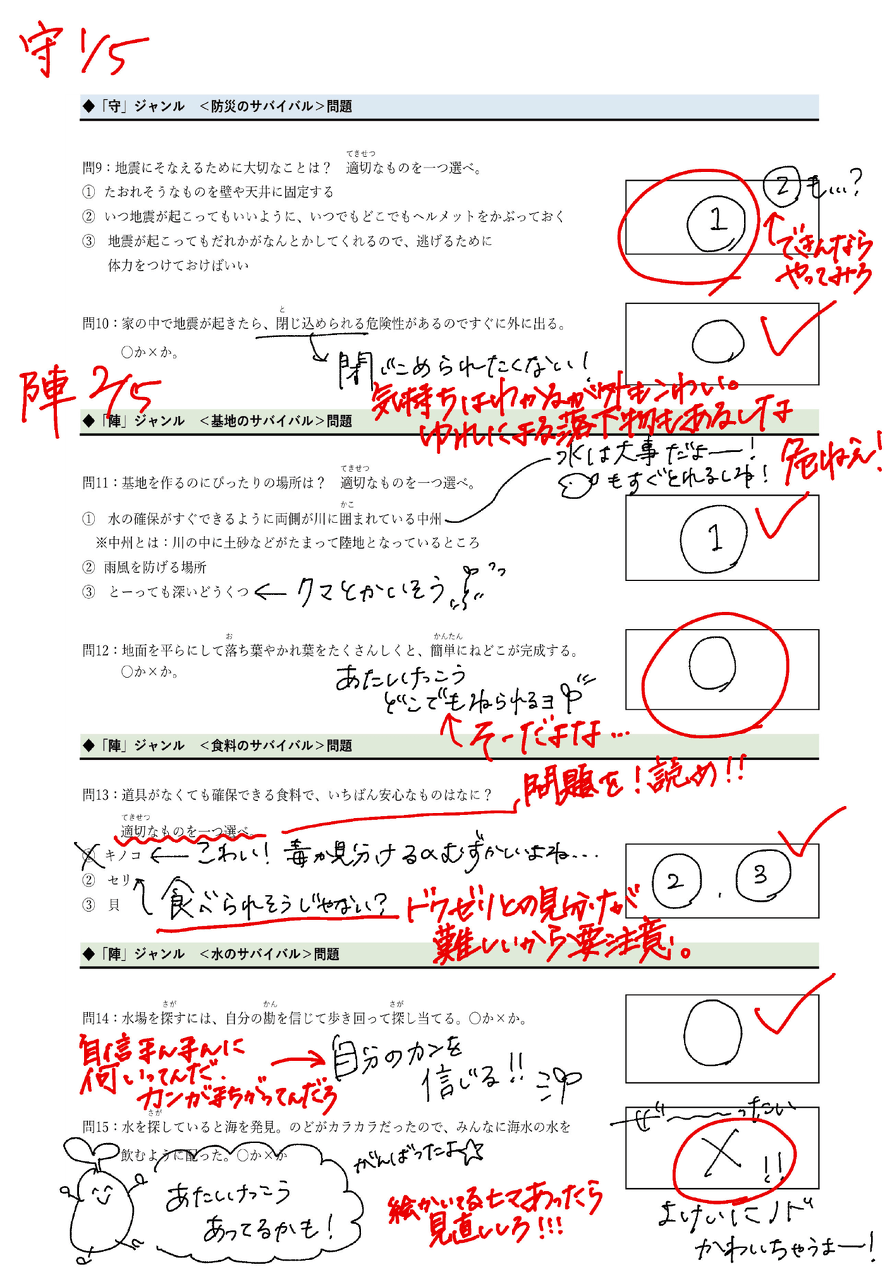 守 1/5
◆「守」ジャンル <防災のサバイバル>問題
てきせつ
問9：地震にそなえるために大切なことは？ 適切なものを一つ選べ。
① たおれそうなものを壁や天井に固定する
② いつ地震が起こってもいいように、いつでもどこでもヘルメットをかぶっておく
③ 地震が起こってもだれかがなんとかしてくれるので、逃げるために
体力をつけておけばいい
①
②も…?
できんなら
やってみろ
と
問10：家の中で地震が起きたら、閉じ込められる危険性があるのですぐに外に出る。
〇か×か。
○
閉じこめられたくない！
気持ちはわかるが外もこわい。
ゆれによる落下物もあるしな
危ねえ！
陣 2/5
◆「陣」ジャンル <基地のサバイバル>問題
水は大事だよー！
もすぐとれるしね！
てきせつ
問11：基地を作るのにぴったりの場所は？ 適切なものを一つ選べ。
かこ
① 水の確保がすぐできるように両側が川に囲まれている中州
※中州とは：川の中に土砂などがたまって陸地となっているところ
② 雨風を防げる場所
③ とーっても深いどうくつ
クマとかいそう
①
お かんたん
問12：地面を平らにして落ち葉やかれ葉をたくさんしくと、簡単にねどこが完成する。
〇か×か。
○
あたしけっこう
どこでもねられるヨ
そーだよな…
◆「陣」ジャンル <食料のサバイバル>問題
問題を！読め!!
問13：道具がなくても確保できる食料で、いちばん安心なものはなに？
てきせつ
適切なものを一つ選べ
① キノコ
こわい！毒か見分けるのむずかしいよね…
② セリ
③ 貝
食べられそうじゃない？
②．③
ドクゼリとの見分けが
難しいから要注意。
◆「陣」ジャンル <水のサバイバル>問題
さが かん さが
問14：水場を探すには、自分の勘を信じて歩き回って探し当てる。〇か×か。
○
自信まんまんに
何いってんだ。
カンがまちがってんだろ
自分のカンを
信じる!!
さが
問15：水を探していると海を発見。のどがカラカラだったので、みんなに海水の水を
飲むように配った。〇か×か
ぜーーったい
×!!
よけいにノド
かわいちゃうよー！
がんばったよ☆
あたしけっこう
あってるかも！
絵かいてるヒマあったら
見直ししろ!!!